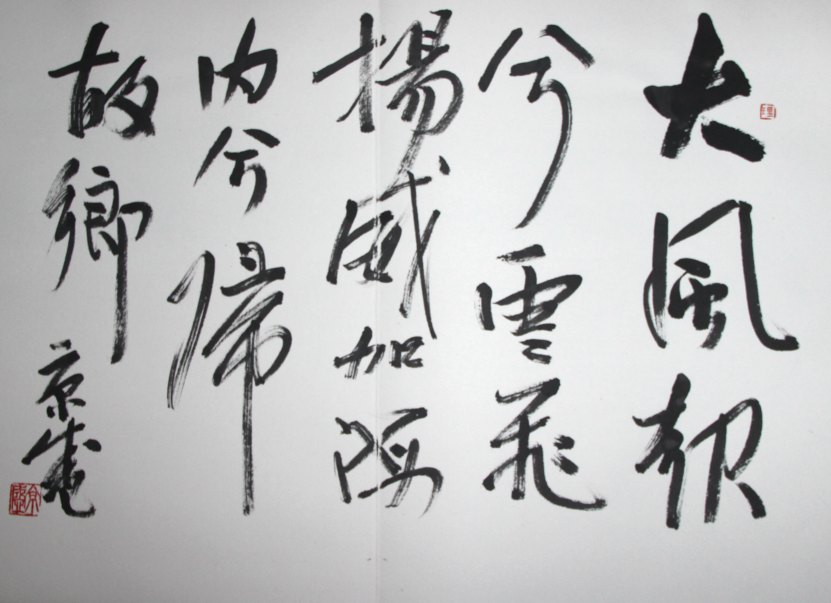 大風起
兮雲飛
揚威加海
内兮帰
故鄉
京盛